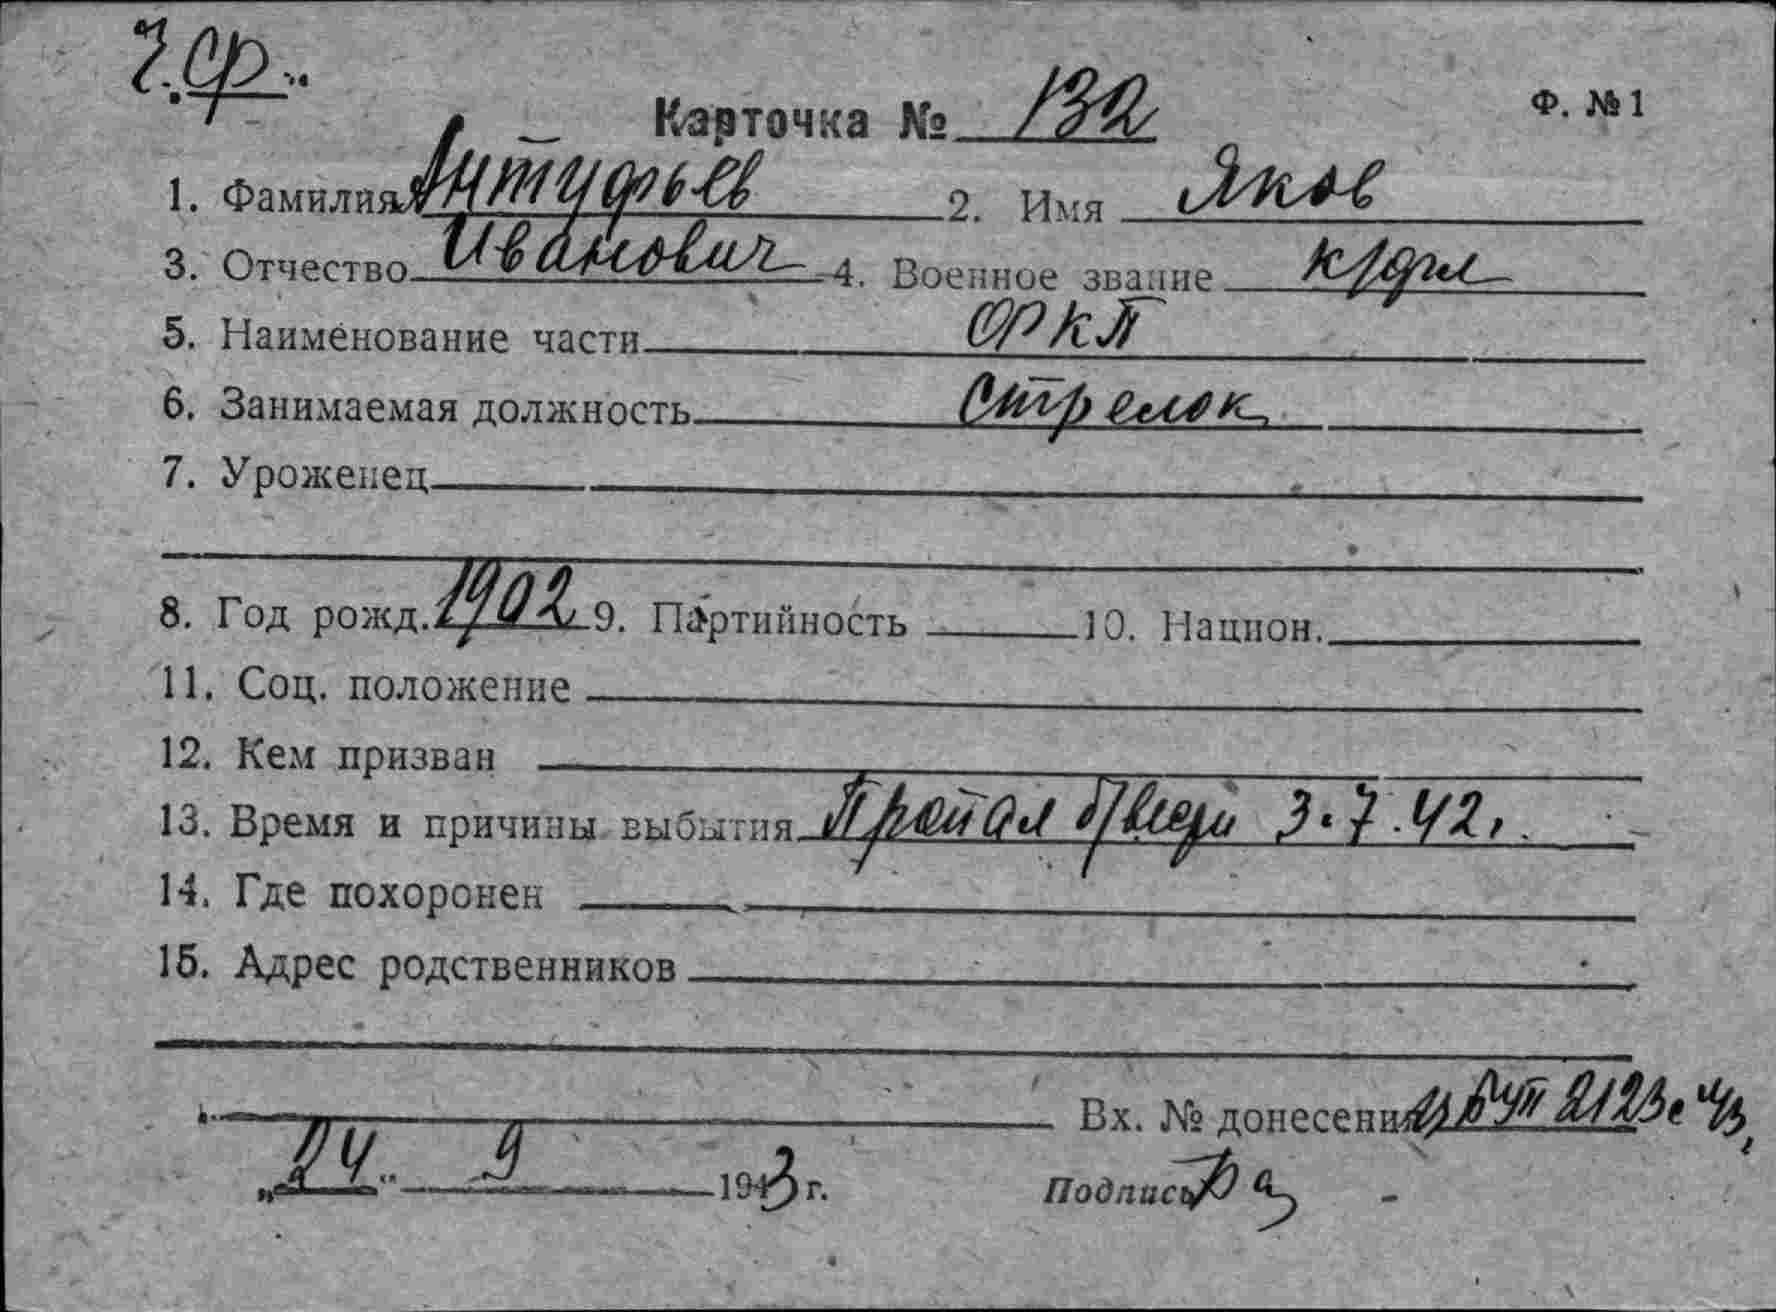 Ч.Ф.
Карточка № 132 Ф. №1
1. Фамилия Антифьев 2. Имя Яков
3. Отчество Иванович 4. Военное звание к/фл
5. Наименование части ОРКП
6. Занимаемая должность Стрелок
7. Уроженец
8. Год рожд. 1902 9. Партийность 10. Национ.
11. Соц. положение
12. Кем призван
13. Время и причины выбытия Пропал 3.7.42г.
14. Где похоронен
15. Адрес родственников
Вх. № донесения 2123с 43
„24" 9 1943 г. Подпись